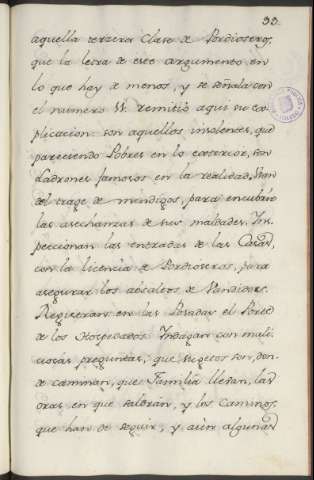 33.
aquella terzera Clase de Pordioseros,
que la letra de este argumento en
lo que hay de menos, y se señala con
el numero 11. remitió aqui su ex
plicacion: son aquellos insolentes, que
pareciendo Pobres en lo exterior, son
Ladrones famosos en la realidad. Usan
del trage de mendigos, para encubrir
las asechanzas de sus maldades. Ins
peccionan las entradas de las Casas,
con la licencia de Pordioseros, para
asegurar los asaltos de Vandidos.
Registran en las Posadas el
de los Hospedados: Indagan con mali
ciosas preguntas, que sugetos son, don
de caminan, que Familia llevan, las
oras en que saldrán, y los Caminos,
que han de seguir; y aún algunas